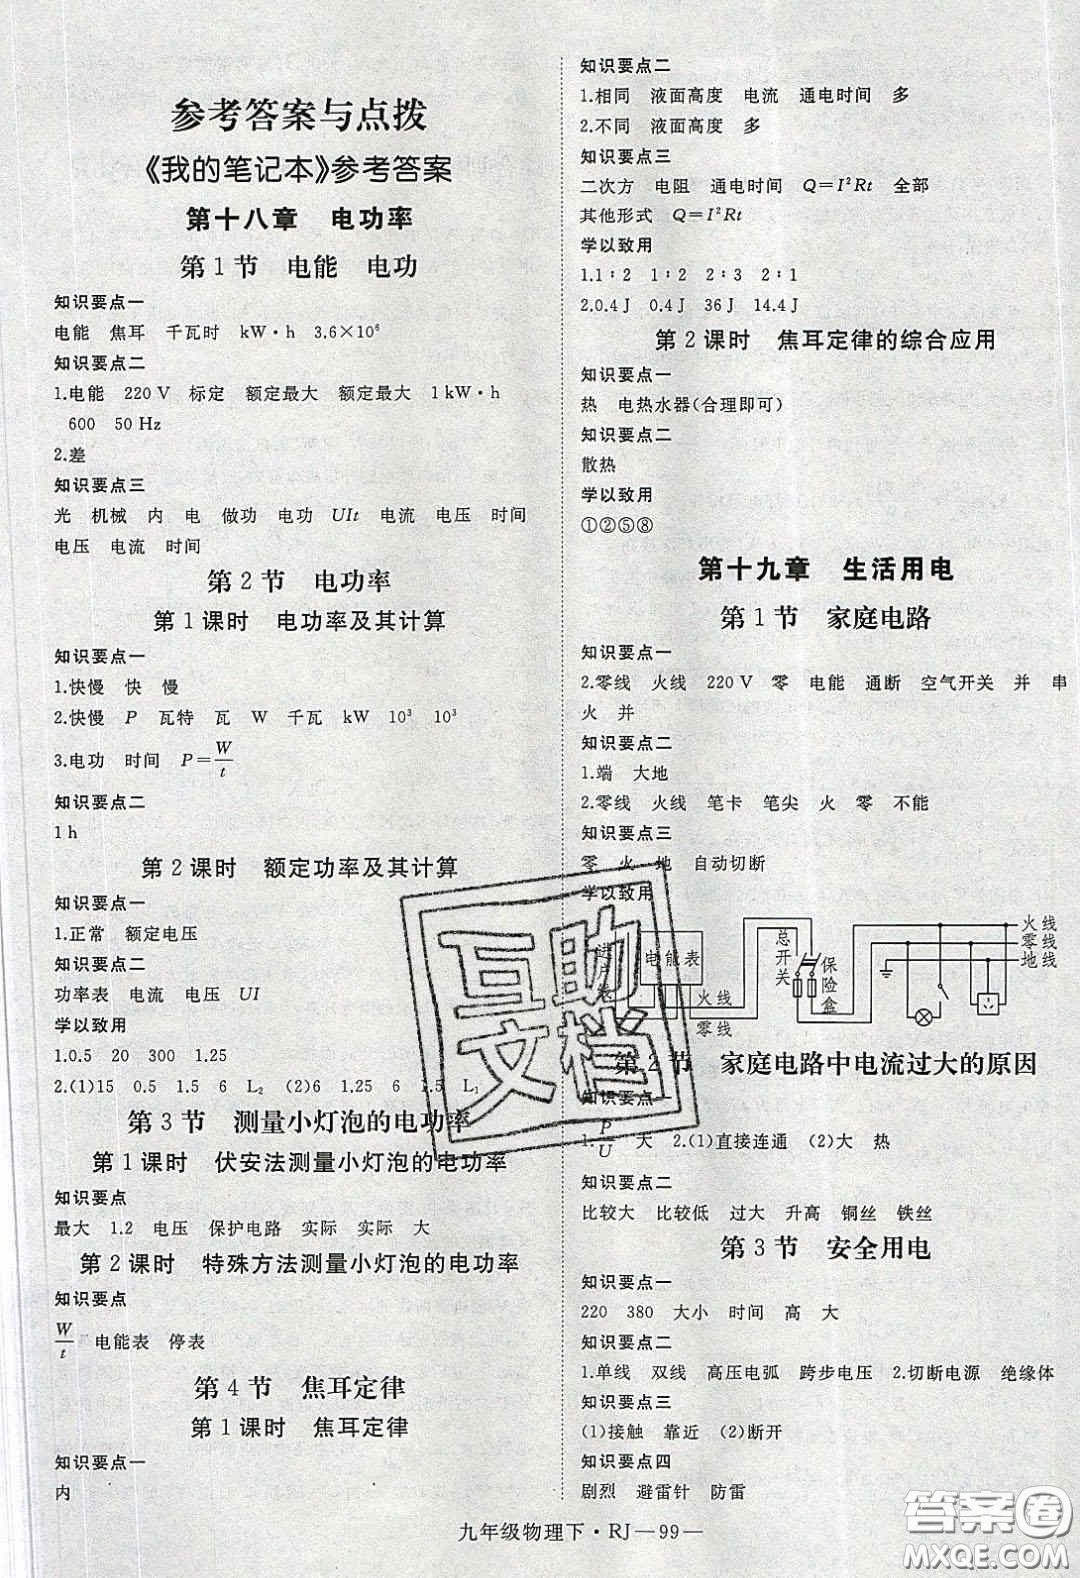 参考答案与点拨
《我的笔记本》参考答案
第十八章 电功率
第1节 电能 电功
知识要点一
电能 焦耳 千瓦时 kW·h 3.6×10⁶
知识要点二
1.电能 220 V 标定 额定最大 额定最大 1 kW·h
600 50 Hz
2.差
知识要点三
光 机械 内 电 做功 电功 UIt 电流 电压 时间
电压 电流 时间
第2节 电功率
第1课时 电功率及其计算
知识要点一
1.快慢 快 慢
2.快慢 P 瓦特 瓦 W 千瓦 kW 10³ 10³
3.电功 时间 P=W/t
知识要点二
1 h
第2课时 额定功率及其计算
知识要点一
1.正常 额定电压
知识要点二
功率表 电流 电压 UI
学以致用
1.0.5 20 300 1.25
2.(1)15 0.5 1.5 6 L₂ (2)6 1.25 6 1.5 L₁
第3节 测量小灯泡的电功率
第1课时 伏安法测量小灯泡的电功率
知识要点
最大 1.2 电压 保护电路 实际 实际 大
第2课时 特殊方法测量小灯泡的电功率
知识要点
W/t 电能表 停表
第4节 焦耳定律
第1课时 焦耳定律
知识要点一
内
知识要点二
1.相同 液面高度 电流 通电时间 多
2.不同 液面高度 多
知识要点三
二次方 电阻 通电时间 Q=I²Rt 全部
其他形式 Q=I²Rt
学以致用
1.1∶2 1∶2 2∶3 2∶1
2.0.4 J 0.4 J 36 J 14.4 J
第2课时 焦耳定律的综合应用
知识要点一
热 电热水器(合理即可)
知识要点二
散热
学以致用
①②⑤⑧
第十九章 生活用电
第1节 家庭电路
知识要点一
2.零线 火线 220 V 零 电能 通断 空气开关 并 串
火 并
知识要点二
1.端 大地
2.零线 火线 笔卡 笔尖 火 零 不能
知识要点三
零 火 地 自动切断
学以致用
进户
电能表
火线
零线
总开关
保险盒
火线
零线
地线
第2节 家庭电路中电流过大的原因
知识要点一
1.P/U 大 2.(1)直接连通 (2)大 热
知识要点二
比较大 比较低 过大 升高 铜丝 铁丝
第3节 安全用电
知识要点一
220 380 大小 时间 高 大
知识要点二
1.单线 双线 高压电弧 跨步电压 2.切断电源 绝缘体
知识要点三
(1)接触 靠近 (2)断开
知识要点四
剧烈 避雷针 防雷
九年级物理下·RJ—99—
互助
文档
答案圈
MXQE.COM